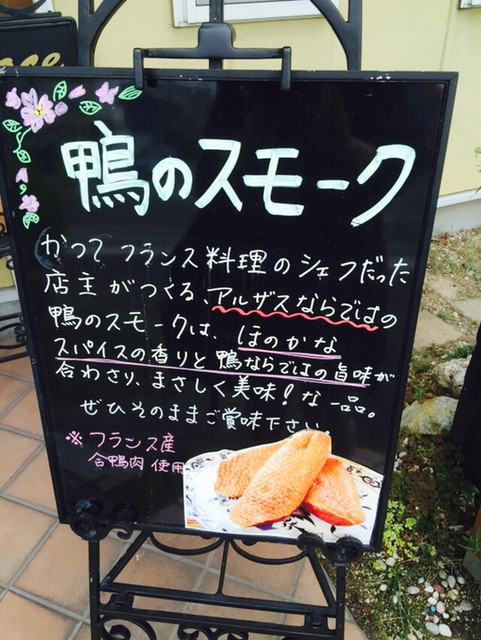 鴨のスモーク
かつてフランス料理のシェフだった
店主がつくる、アルザスならではの
鴨のスモークは、ほのかな
スパイスの香りと鴨ならではの旨味が
合わさり、まさしく美味!な一品。
ぜひそのままご賞味下さい。
※フランス産
合鴨肉使用